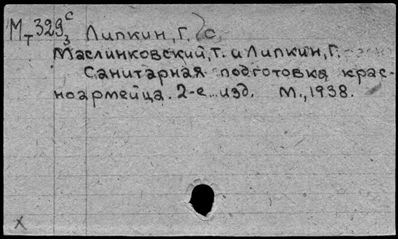 М-329с Липкин, Г. С.
Т 3
Маслинковский, Т. и Липкин, Г.
Санитарная подготовка крас-
ноармейца. 2-е изд. М., 1938.
X